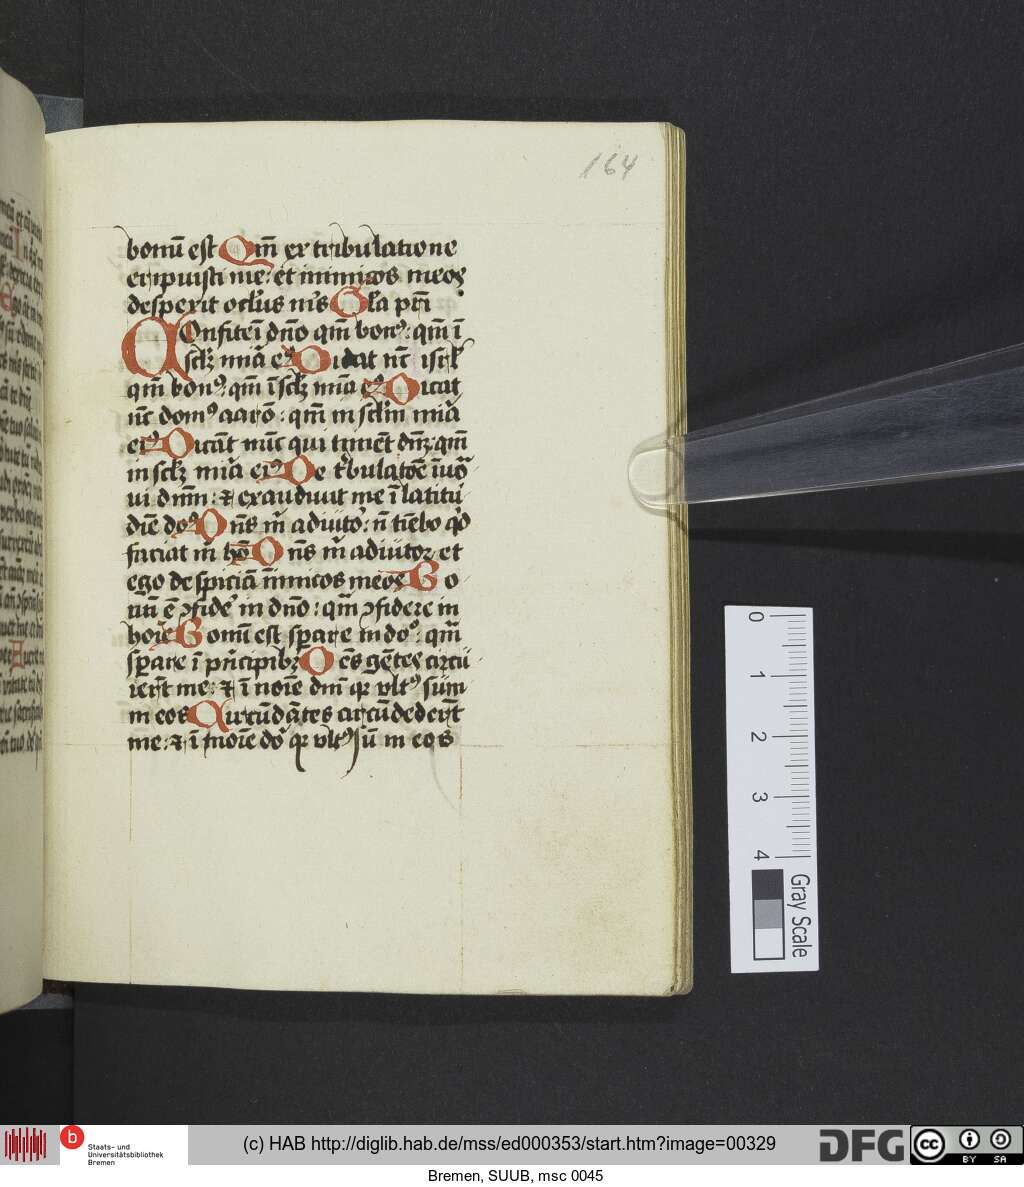 164
bonū est Qm̄ ex tribulatione
eripuisti me: et inimicos meos
despexit oclus ms Gla pri
COnfitei dno qm bonꝰ: qm ī
sclꝫ mia eiꝰ Dicat nc isrl
qm bonꝰ: qm īsclꝫ mia eiꝰ Dicat
nc domꝰ aarō: qm in sclm mia
eiꝰ Dicāt nūc qui timēt dnm: qm
in sclꝫ mia eiꝰ De tbulatōe īuo
ui dnm: ⁊ exaudiuit me ī latitu
die doꝰ Dns m adiuto: n timebo qd
faciat m ho Dns m adiutor et
ego despiciā inimicos meos Bo
nū ē ꝯfide in dno: qm ꝯfidere in
hoie Bonū est sperare in do: qm
sperare ī principibꝫ Oēs gētes circu
ierūt me: ⁊ ī noie dni qr vltꝰ sum
in eos Circūdātes circūdederūt
me: ⁊ ī noie do qr vltꝰ sū in eos
0
1
2
3
4
Gray Scale
b Staats- und
Universitätsbibliothek
Bremen
(c) HAB http://diglib.hab.de/mss/ed000353/start.htm?image=00329
DFG
cc BY SA
Bremen, SUUB, msc 0045